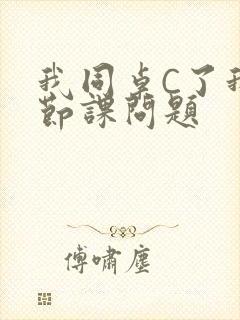 我同桌C了我
节课问题
傅啸尘